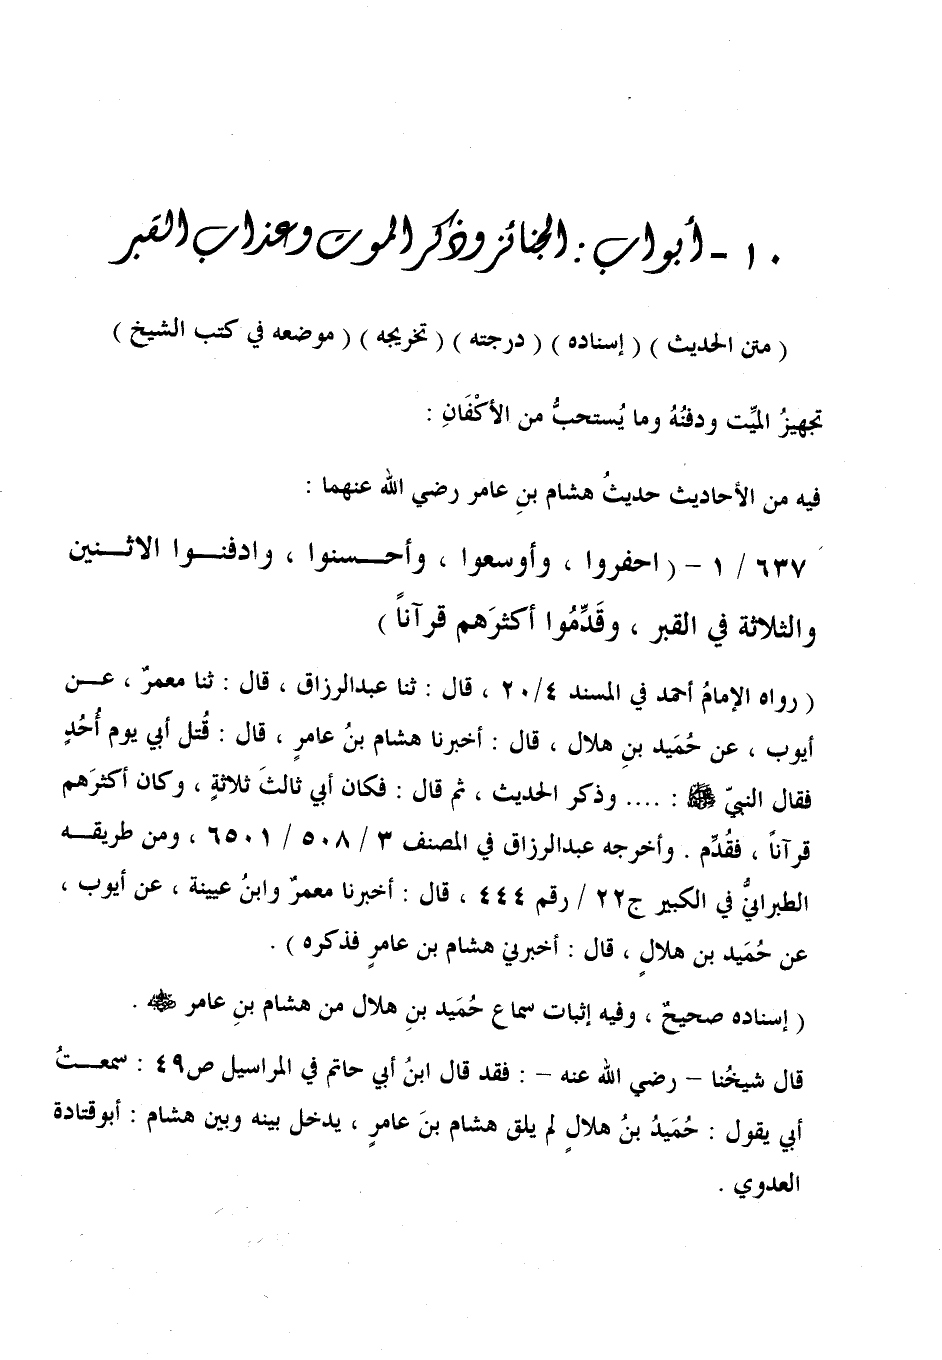 ١٠ - أبواب : الجنائز وذكر الموت وعذاب القبر
( متن الحديث ) ( إسناده ) ( درجته ) ( تخريجه ) ( موضعه في كتب الشيخ )
تجهيزُ الميِّت ودفنُهُ وما يُستحبُّ من الأكْفَانِ :
فيه من الأحاديث حديثُ هشام بنِ عامر رضي الله عنهما :
٦٣٧ / ١ - ( احفروا ، وأوسعوا ، وأحسنوا ، وادفنوا الاثنين
والثلاثة في القبر ، وقَدِّمُوا أكثرَهم قرآناً )
( رواه الإمامُ أحمد في المسند ٢٠/٤ ، قال : ثنا عبدالرزاق ، قال : ثنا معمرٌ ، عن
أيوب ، عن حُمَيد بنِ هلال ، قال : أخبرنا هشام بنُ عامرٍ ، قال : قُتل أبي يوم أُحُدٍ
فقال النبيّ ﷺ : .... وذكر الحديث ، ثم قال : فكان أبي ثالثَ ثلاثةٍ ، وكان أكثرَهم
قرآناً ، فقُدِّم . وأخرجه عبدالرزاق في المصنف ٣ / ٥٠٨ / ٦٥٠١ ، ومن طريقه
الطبرانيُّ في الكبير ج٢٢ / رقم ٤٤٤ ، قال : أخبرنا معمرٌ وابنُ عيينة ، عن أيوب ،
عن حُمَيد بن هلالٍ ، قال : أخبرني هشام بن عامرٍ فذكره ) .
( إسناده صحيحٌ ، وفيه إثبات سماع حُمَيد بنِ هلال من هشام بنِ عامر ﵁ .
قال شيخُنا – رضي الله عنه – : فقد قال ابنُ أبي حاتم في المراسيل ص٤٩ : سمعتُ
أبي يقول : حُمَيدُ بنُ هلالٍ لم يلق هشام بنَ عامرٍ ، يدخل بينه وبين هشام : أبوقتادة
العدوي .